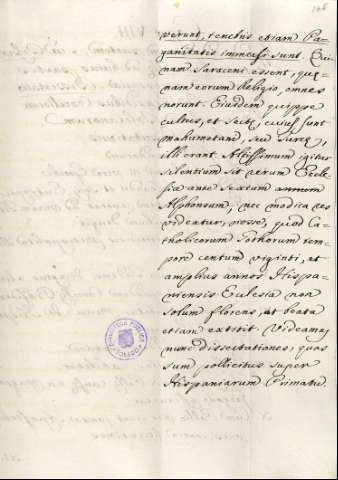 146
verunt, tenebris etiam Pa-
ganitatis immersi sunt. Qui-
nam Saraceni essent, quę-
nam eorum Religio, omnes
norunt. Eiusdem quippe
cultus, et Sectę, cuius sunt
mahumetani, seu Turcę,
illi erant. Altissimum igitur
silentium sit rerum Eccle-
siæ ante Sextum annum
Alphonsum; nec modica res
videatur, posse, quod Ca-
tholicorum Gothorum tem-
pore centum viginti, et
amplius annos Hispa-
niensis Ecclesia non
solum florens, et beata
etiam extitit. Videamus
nunc dissertationes, quas
sum pollicitus super
Hispaniarum Primatu.
BIBLIOTECA PUBLICA
TOLEDO